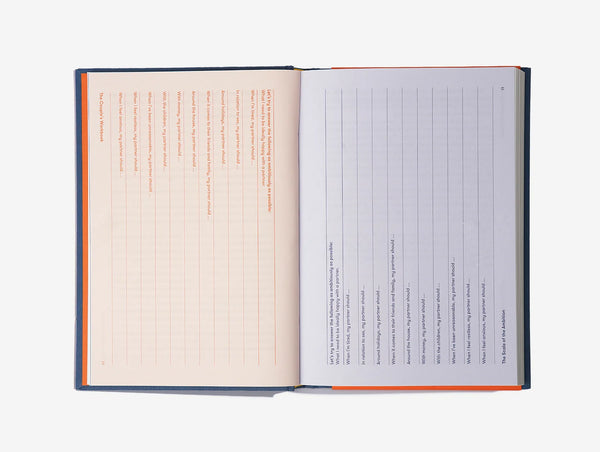 Let's try to answer the following as ambitiously as possible:
What I need to be ideally happy with a partner.
When I'm tired, my partner should ...
In relation to sex, my partner should ...
Around holidays, my partner should ...
When it comes to their friends and family, my partner should ...
Around the house, my partner should ...
With money, my partner should ...
With the children, my partner should ...
When I've been unreasonable, my partner should ...
When I feel restless, my partner should ...
When I feel anxious, my partner should ...
The Couple's Workbook
Let's try to answer the following as ambitiously as possible:
What I need to be ideally happy with a partner.
When I'm tired, my partner should ...
In relation to sex, my partner should ...
Around holidays, my partner should ...
When it comes to their friends and family, my partner should ...
Around the house, my partner should ...
With money, my partner should ...
With the children, my partner should ...
When I've been unreasonable, my partner should ...
When I feel restless, my partner should ...
When I feel anxious, my partner should ...
The Scale of the Ambition